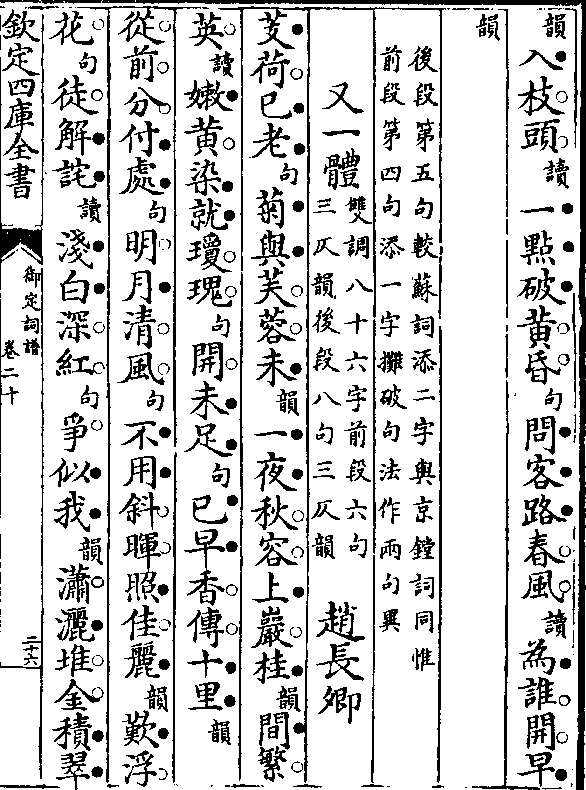 韻入枝頭讀一點破黃昏句問客路春風讀為誰開早
韻
後段第五句較蘇詞添二字與京鏜詞同惟
前段第四句添一字攤破句法作兩句異
又一體雙調八十六字前段六句
三仄韻後段八句三仄韻
趙長卿
芰荷已老句菊與芙蓉未韻一夜秋容上巖桂韻間繁
英讀嫩黃染就瓊瑰句開未足句已早香傳十里韻
從前分付處句明月清風句不用斜暉照佳麗韻歎浮
花句徒解詫讀淺白深紅句爭似我韻瀟灑堆金積翠
欽定四庫全書
御定詞譜
卷二十
二十六